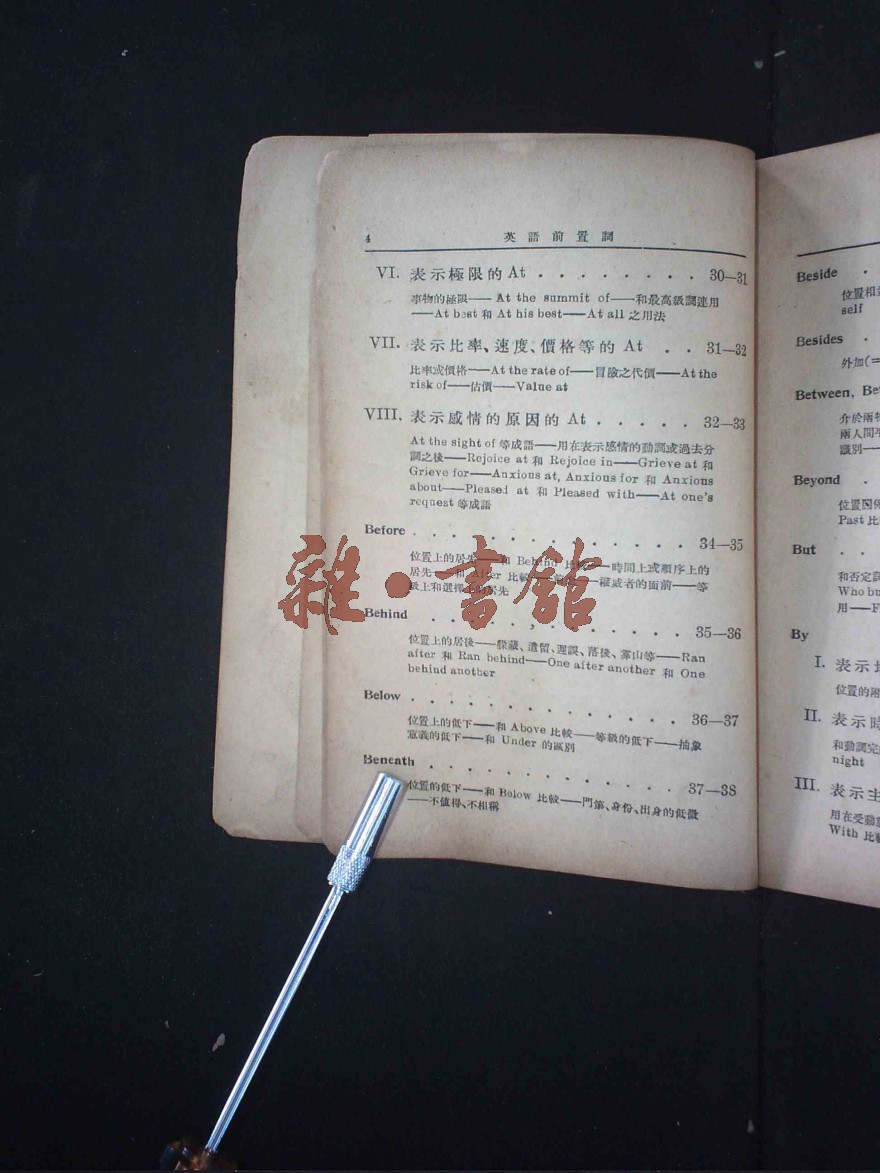 4 英語前置詞
VI. 表示極限的 At . . . . . . . . 30—31
事物的極限—— At the summit of——和最高級詞連用
——At best 和 At his best——At all 之用法
VII. 表示比率、速度、價格等的 At . . 31—32
比率或價格——At the rate of——冒險之代價——At the
risk of——估價——Value at
VIII. 表示感情的原因的 At . . . . . 32—33
At the sight of 等成語——用在表示感情的動詞或過去分
詞之後——Rejoice at 和 Rejoice in——Grieve at 和
Grieve for——Anxious at, Anxious for 和 Anxious
about——Pleased at 和 Pleased with——At one's
request 等成語
Before . . . . . . . . . . . . . 34—35
位置上的居先——和 Behind 比較——時間上或順序上的
居先——和 After 比較——權威者的面前——等
級上和選擇上的居先
Behind . . . . . . . . . . . . . 35—36
位置上的居後——躲藏、遺留、遲誤、落後、靠山等——Ran
after 和 Ran behind——One after another 和 One
behind another
Below . . . . . . . . . . . . . 36—37
位置上的低下——和 Above 比較——等級的低下——抽象
意義的低下——和 Under 的區別
Beneath . . . . . . . . . . . . 37—38
位置的低下——和 Below 比較——門第、身份、出身的低微
——不值得、不相稱
雜·書館
Beside
位置相
self
Besides
外加(=
Between, Be
介於兩
兩人間
識別——
Beyond
位置
Past 比
But
和否定
Who bu
用——F
By
I. 表示
位置的
II. 表示
和動詞完
night
III. 表示主
用在受動
With 比較